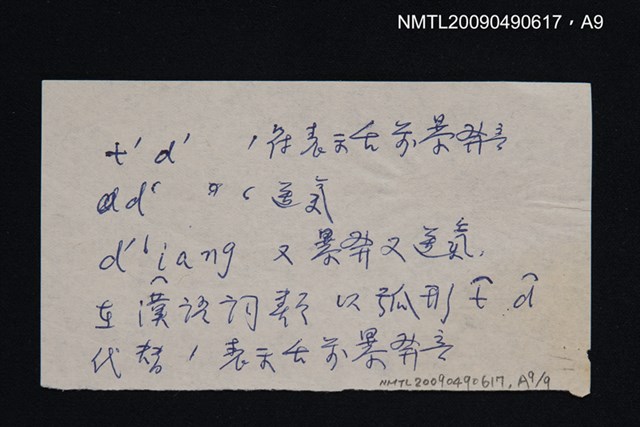 NMTL20090490617，A9
t′ d′ ′符表示舌前暴發音
d‘ " ‘ 送气
d′‘iang 又暴發又送氣.
在漢語詞類 以弧形 t̑ d̑
代替 ′ 表示舌前暴發音
NMTL20090490617, A9/9